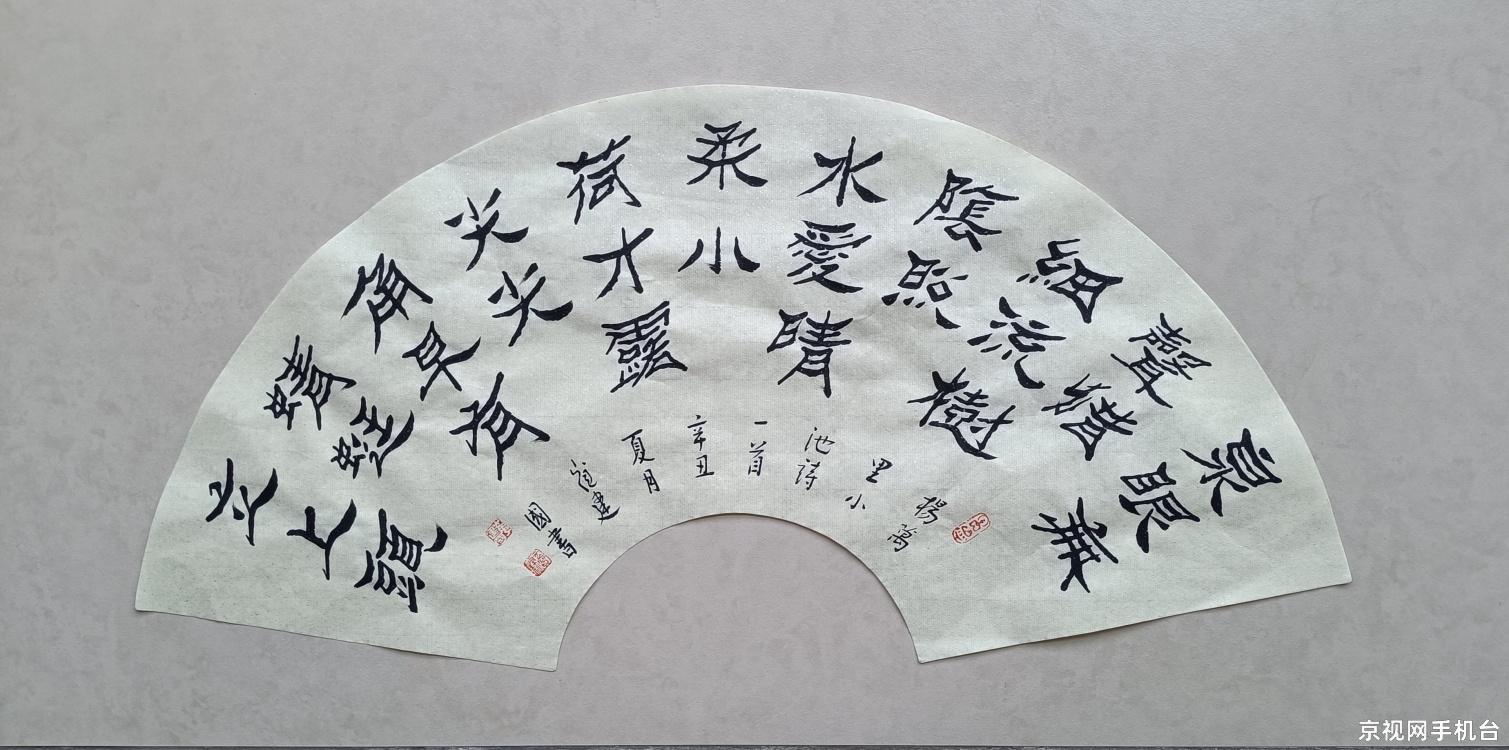 泉眼無
聲惜
細流樹
陰照
水愛晴
柔小
荷才露
尖尖
角早有
蜻蜓
立上頭
楊萬
里小
池詩
一首
辛丑
夏月
建
國書
京视网手机台